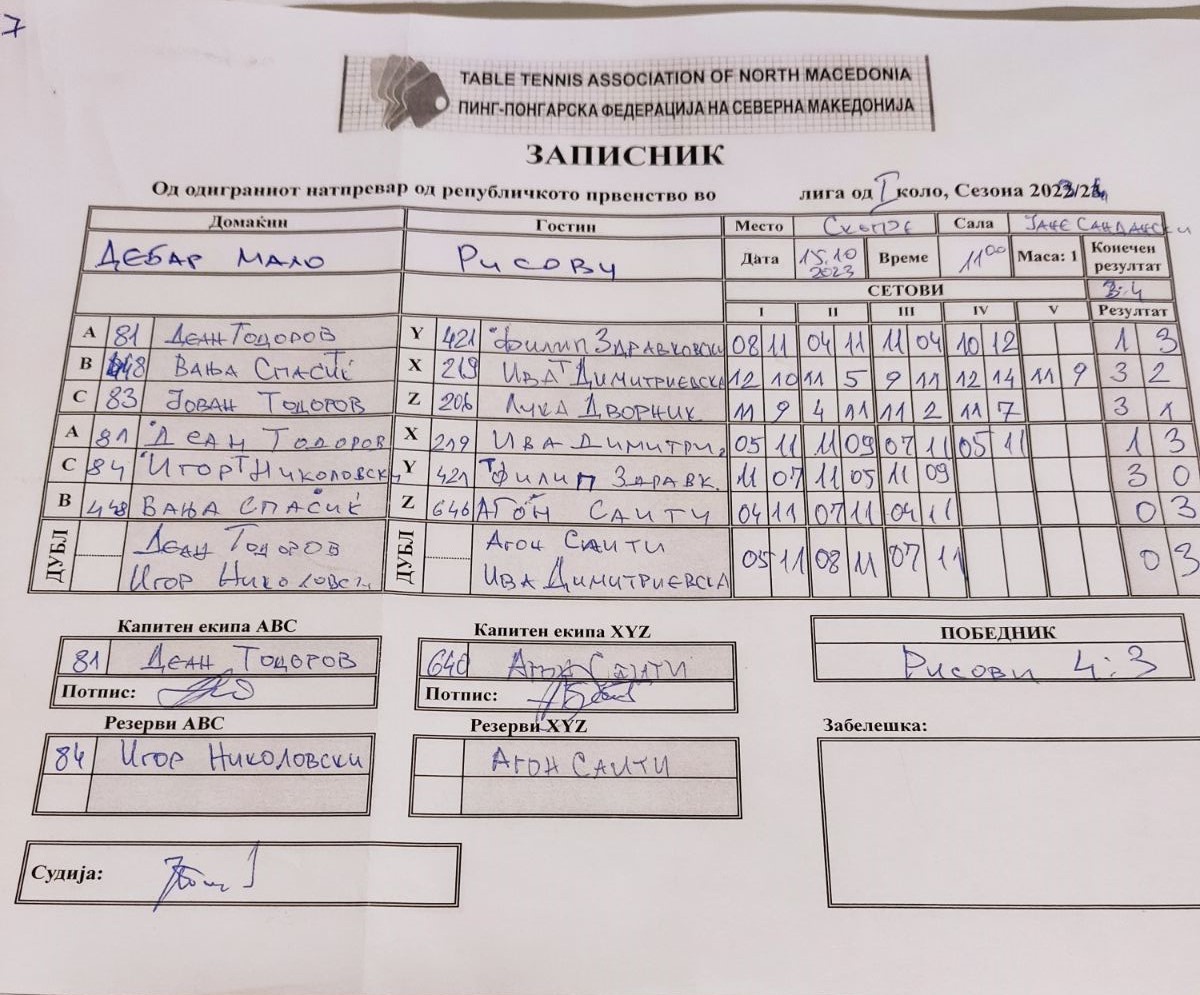 7
TABLE TENNIS ASSOCIATION OF NORTH MACEDONIA
ПИНГ-ПОНГАРСКА ФЕДЕРАЦИЈА НА СЕВЕРНА МАКЕДОНИЈА
ЗАПИСНИК
Од одиграниот натпревар од републичкото првенство во лига од I коло, Сезона 2023/24
Домаќин Гостин Место Скопје Сала Јане Сандански
ДЕБАР МАЛО Рисови Дата 15.10 2023 Време 11 00 Маса: 1 Конечен резултат
СЕТОВИ 3:4
I II III IV V Резултат
A 81 Деан Тодоров Y 421 Филип Здравковски 08 11 04 11 11 04 10 12 1 3
B 448 Вања Спасиќ X 219 Ива Димитриевска 12 10 11 5 9 11 12 14 11 9 3 2
C 83 Јован Тодоров Z 206 Лука Дворник 11 9 4 11 11 2 11 7 3 1
A 81 Деан Тодоров X 219 Ива Димитри. 05 11 11 09 07 11 05 11 1 3
C 84 Игор Николовски Y 421 Филип Здравк. 11 07 11 05 11 09 3 0
B 448 Вања Спасиќ Z 646 Агон Саити 04 11 07 11 04 11 0 3
ДУБЛ Деан Тодоров ДУБЛ Агон Саити 05 11 08 11 07 11 0 3
Игор Николовски Ива Димитриевска
Капитен екипа ABC Капитен екипа XYZ ПОБЕДНИК
81 Деан Тодоров 646 Агон Саити Рисови 4:3
Потпис: Потпис:
Резерви ABC Резерви XYZ Забелешка:
84 Игор Николовски Агон Саити
Судија: